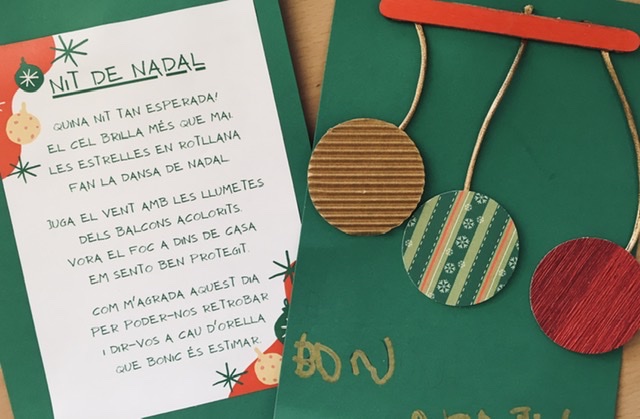 NIT DE NADAL
QUINA NIT TAN ESPERADA!
EL CEL BRILLA MÉS QUE MAI.
LES ESTRELLES EN ROTLLANA
FAN LA DANSA DE NADAL
JUGA EL VENT AMB LES LLUMETES
DELS BALCONS ACOLORITS.
VORA EL FOC A DINS DE CASA
EM SENTO BEN PROTEGIT.
COM M'AGRADA AQUEST DIA
PER PODER-NOS RETROBAR
I DIR-VOS A CAU D'ORELLA
QUE BONIC ÉS ESTIMAR.
BON